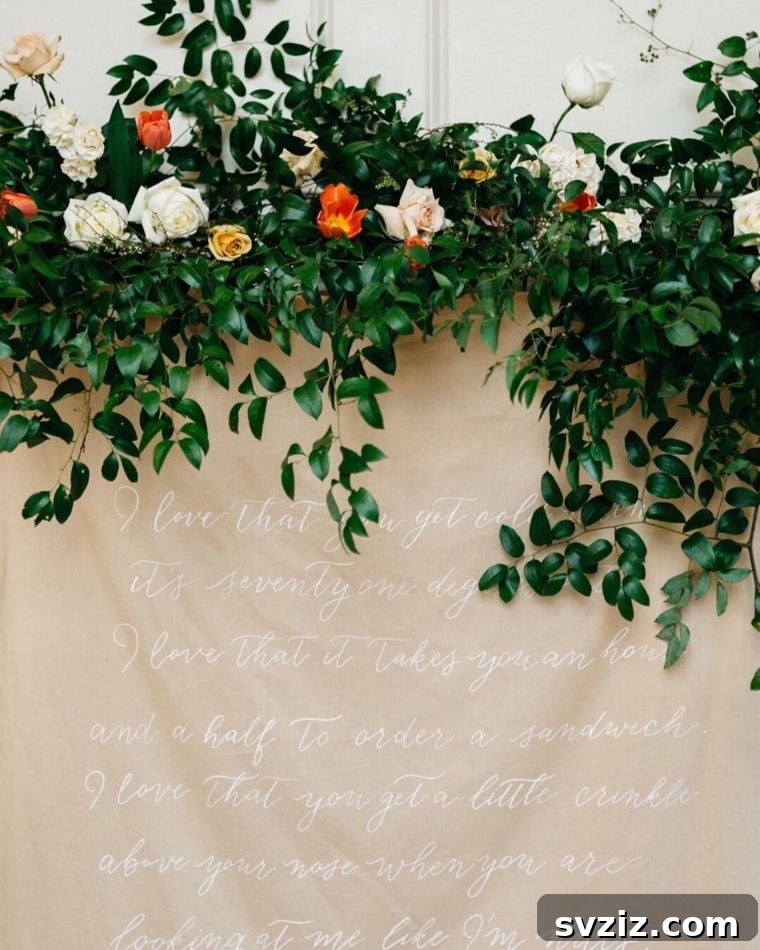 I love that you get
it's seventy one
I love that it takes you an
and a half to order a sandwich.
I love that you get a little crinkle
above your nose when you are
looking at me like I'm
svziz.com